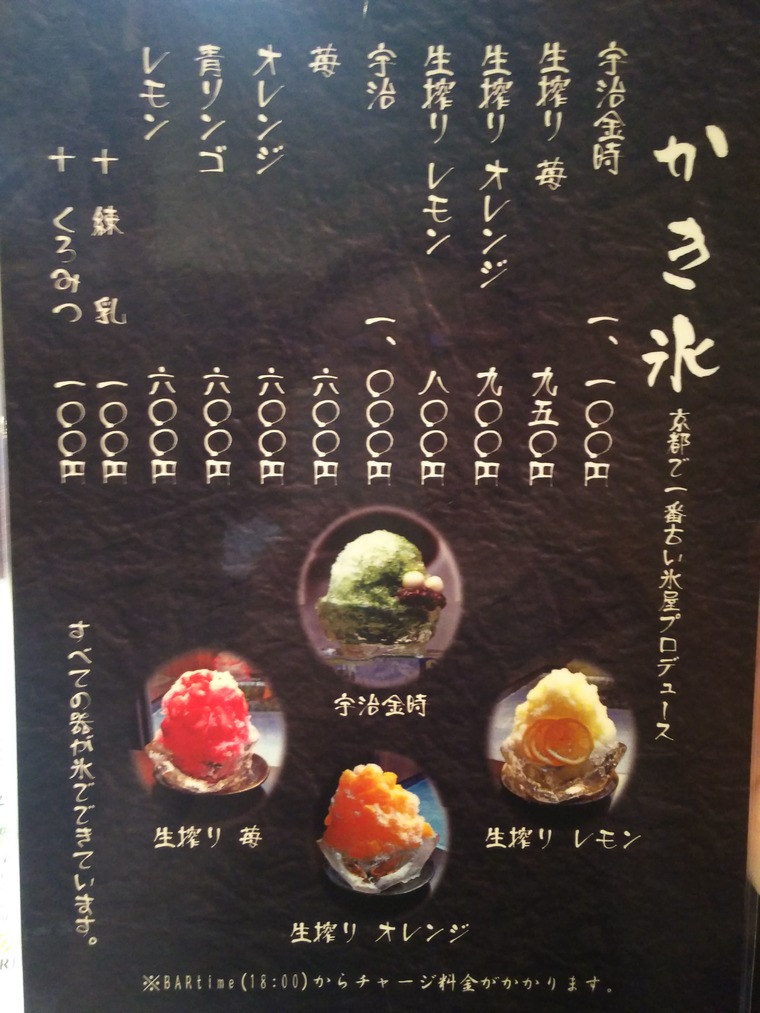 かき氷
京都で一番古い氷屋プロデュース
宇治金時 一、一〇〇円
生搾り 苺 九五〇円
生搾り オレンジ 九〇〇円
生搾り レモン 八〇〇円
宇治 一、〇〇〇円
苺 六〇〇円
オレンジ 六〇〇円
青リンゴ 六〇〇円
レモン 六〇〇円
＋ 練乳 一〇〇円
＋ くろみつ 一〇〇円
宇治金時
生搾り 苺
生搾り レモン
生搾り オレンジ
すべての器が氷でできています。
※BARtime(18:00)からチャージ料金がかかります。